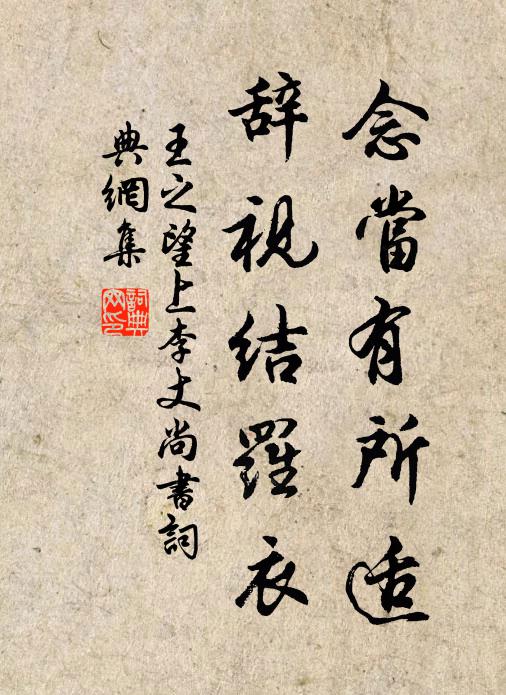 念當有所适
辞視結羅衣
王之望上李丈尚書詞
典網集
詞典網印